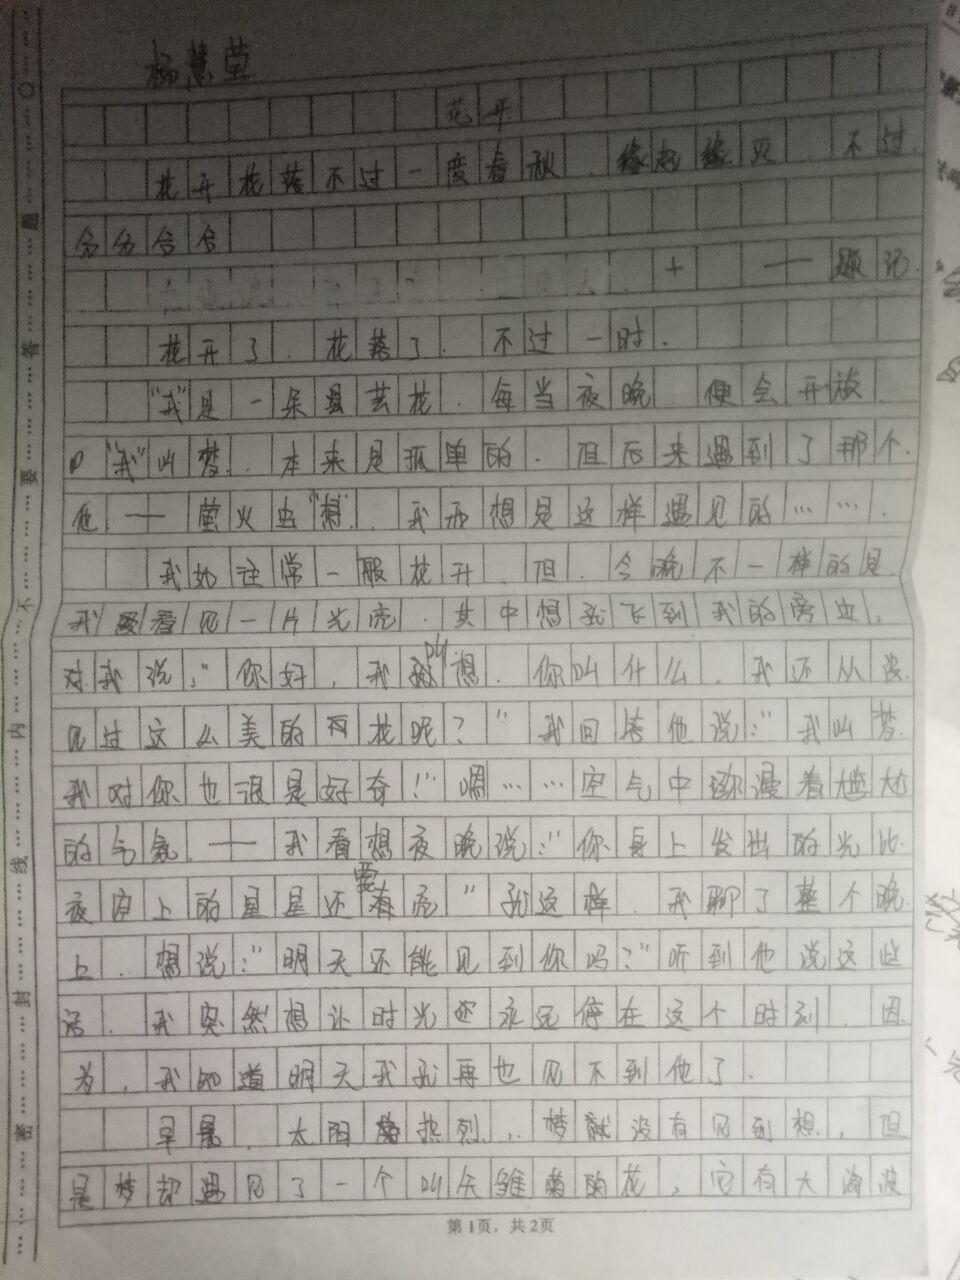 杨慧莹
花开
花开花落不过一度春秋,缘起缘灭,不过
分分合合
——题记
花开了,花落了,不过一时.
"我"是一朵昙芸花,每当夜晚,便会开放,
"我"叫梦,本来是孤单的,但后来遇到了那个
他——萤火虫"想",我和想是这样遇见的……
我如往常一般花开,但,今晚不一样的是
我看见一片光亮,其中想就飞到我的旁边,
对我说:"你好,我叫想,你叫什么,我还从没
见过这么美的花呢?"我回答他说:"我叫梦,
我对你也很是好奇!"嗯……空气中弥漫着尴尬
的气氛,——我看想夜晚说:"你身上发出的光比
夜空上的星星还要亮"就这样,我聊了整个晚
上,想说:"明天还能见到你吗?"听到他说这些
话,我突然想让时光永远停在这个时刻,因
为,我知道明天我就再也见不到他了.
早晨,太阳热烈,梦就没有见到想,但
是梦却遇见了一个叫余雏菊的花,它有大海般
第1页,共2页
密 封 线 内 不 要 答 题